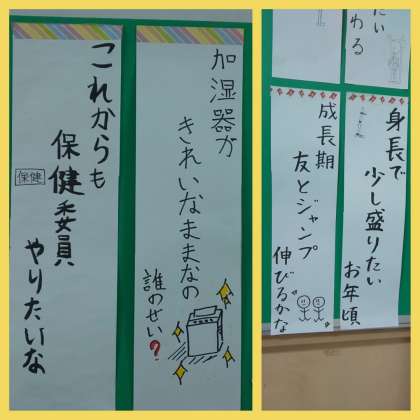 加湿器が
きれいなままなの
誰のせい?
これからも
保健委員
保健
やりたいな
たい
わる
身長で
少し盛りたい
お年頃
成長期
友とジャンプ
伸びるかな